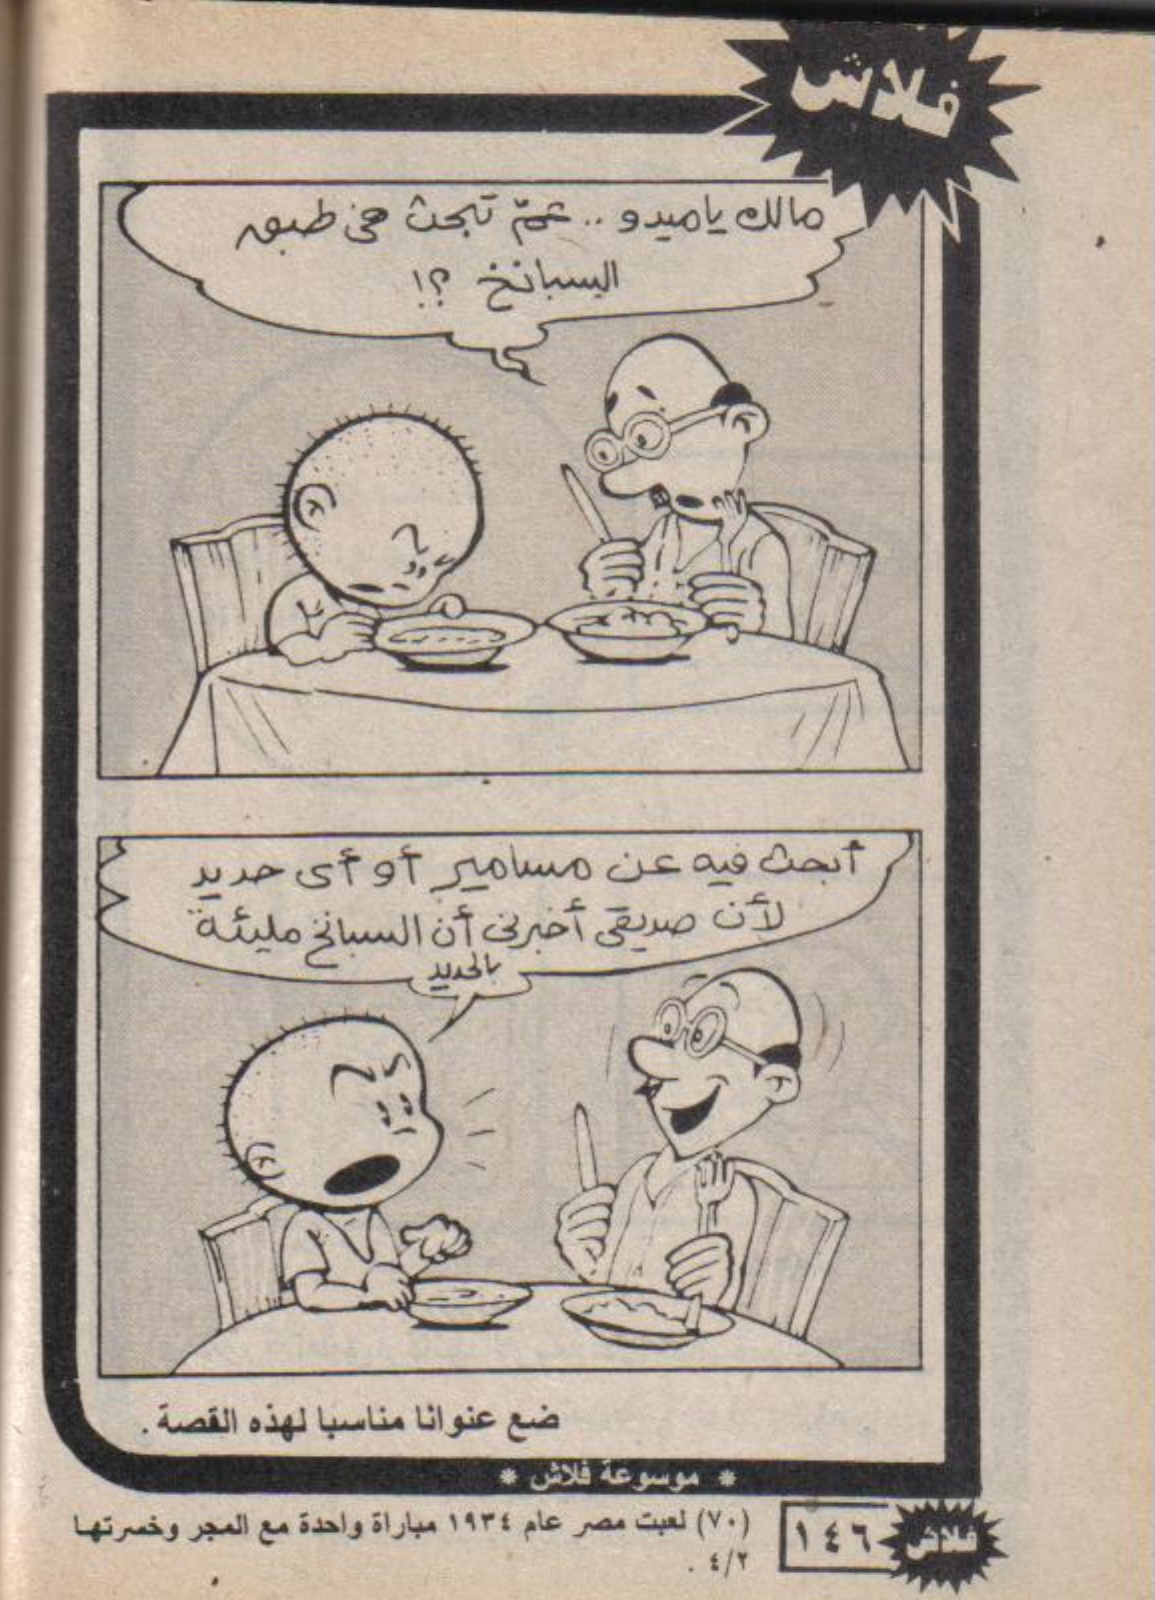 فلاش
مالك ياميدو .. عمّ تبحث في طبق
السبانخ ؟!
أبحث فيه عن مسامير أو أى حديد
لأن صديقى أخبرنى أن السبانخ مليئة
بالحديد
ضع عنوانا مناسبا لهذه القصة .
* موسوعة فلاش *
(٧٠) لعبت مصر عام ١٩٣٤ مباراة واحدة مع المجر وخسرتها
٤/٢ .
١٤٦
فلاش